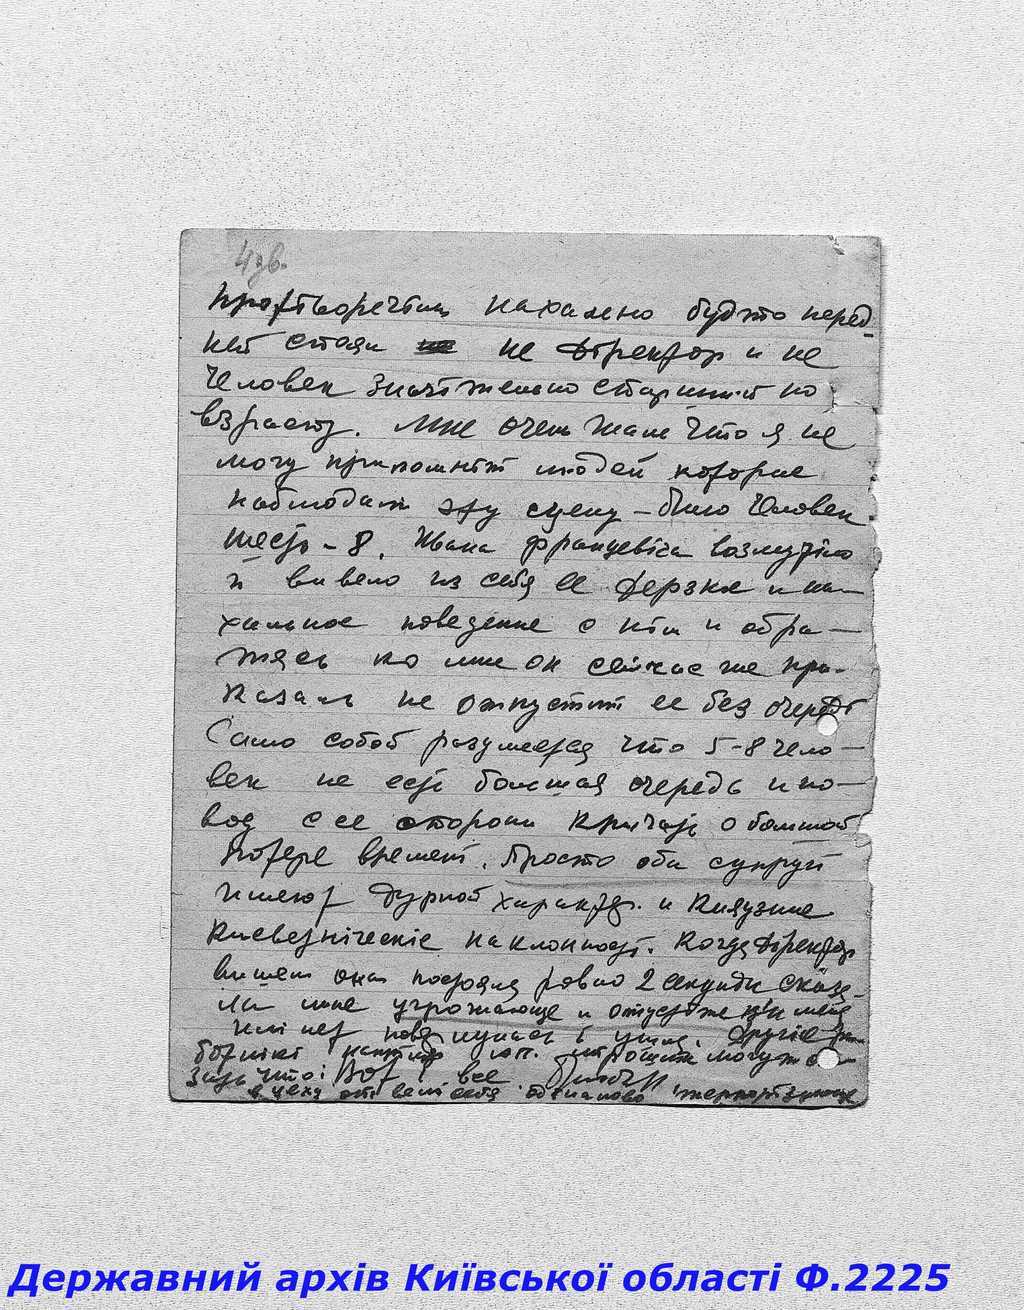 4зв.
нахально будто перед
ней стоял не директор и не
человек значительно старший по
возрасту. Мне очень жаль что я не
могу припомнить людей которые
наблюдали эту сцену – было человек
шесть – 8. Ивана Францевіча возмутіло
и вивело из себя ее дерзкое и на-
хальное поведение с нім и обра-
тясь ко мне он сейчас же при-
казал не отпустит ее без очереді
Само собой разумеется что 5-8 чело-
век не есть большая очередь и по-
вод с ее стороны кричать о большой
потере времені. Просто оба супругі
имеют дурной характер. и
наклонності. Когда діректор
вишел она постояла ровно 2 секунди сказа-
ла мне угрожающе и отпустіте і меня
или нет и ушла. Другіе ра-
ботнікі могут ска-
зать что: Вот і все
в цеху оні велі себя одінаково
Державний архів Київської області Ф.2225